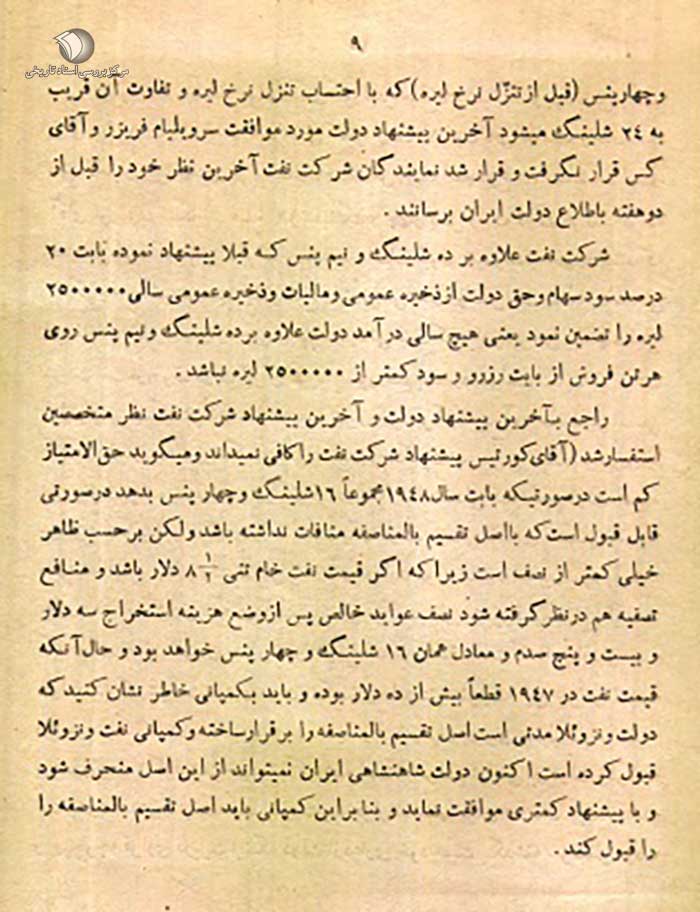 ۹
مرکز بررسی اسناد تاریخی
وچهارپنس (قبل از تنزّل نرخ لیره) که با احتساب تنزل نرخ لیره و تفاوت آن قریب
به ۲٤ شلینگ میشود آخرین پیشنهاد دولت مورد موافقت سرویلیام فریزر و آقای
کس قرار نگرفت و قرار شد نمایندگان شرکت نفت آخرین نظر خود را قبل از
دوهفته باطلاع دولت ایران برسانند .
شرکت نفت علاوه بر ده شلینگ و نیم پنس که قبلا پیشنهاد نموده بابت ۲۰
درصد سود سهام وحق دولت از ذخیره عمومی ومالیات وذخیره عمومی سالی ۲۵۰۰۰۰۰
لیره را تضمین نمود یعنی هیچ سالی درآمد دولت علاوه برده شلینگ ونیم پنس روی
هرتن فروش از بابت رزرو و سود کمتر از ۲۵۰۰۰۰۰ لیره نباشد .
راجع بآخرین پیشنهاد دولت و آخرین پیشنهاد شرکت نفت نظر متخصصین
استفسار شد (آقای کورتیس پیشنهاد شرکت نفت را کافی نمیداند ومیگوید حق الامتیاز
کم است درصورتیکه بابت سال ۱۹٤۸ مجموعاً ۱٦ شلینگ وچهار پنس بدهد درصورتی
قابل قبول است که بااصل تقسیم بالمناصفه منافات نداشته باشد ولکن برحسب ظاهر
خیلی کمتر از نصف است زیرا که اگر قیمت نفت خام تنی ۸ ۱/۲ دلار باشد و منافع
تصفیه هم درنظر گرفته شود نصف عواید خالص پس ازوضع هزینه استخراج سه دلار
و بیست و پنج صدم و معادل همان ۱٦ شلینگ و چهار پنس خواهد بود و حال آنکه
قیمت نفت در ۱۹٤۷ قطعاً بیش از ده دلار بوده و باید بکمپانی خاطر نشان کنید که
دولت ونزوئلا مدتی است اصل تقسیم بالمناصفه را برقرارساخته وکمپانی نفت ونزوئلا
قبول کرده است اکنون دولت شاهنشاهی ایران نمیتواند از این اصل منحرف شود
و با پیشنهاد کمتری موافقت نماید و بنابراین کمپانی باید اصل تقسیم بالمناصفه را
را قبول کند .